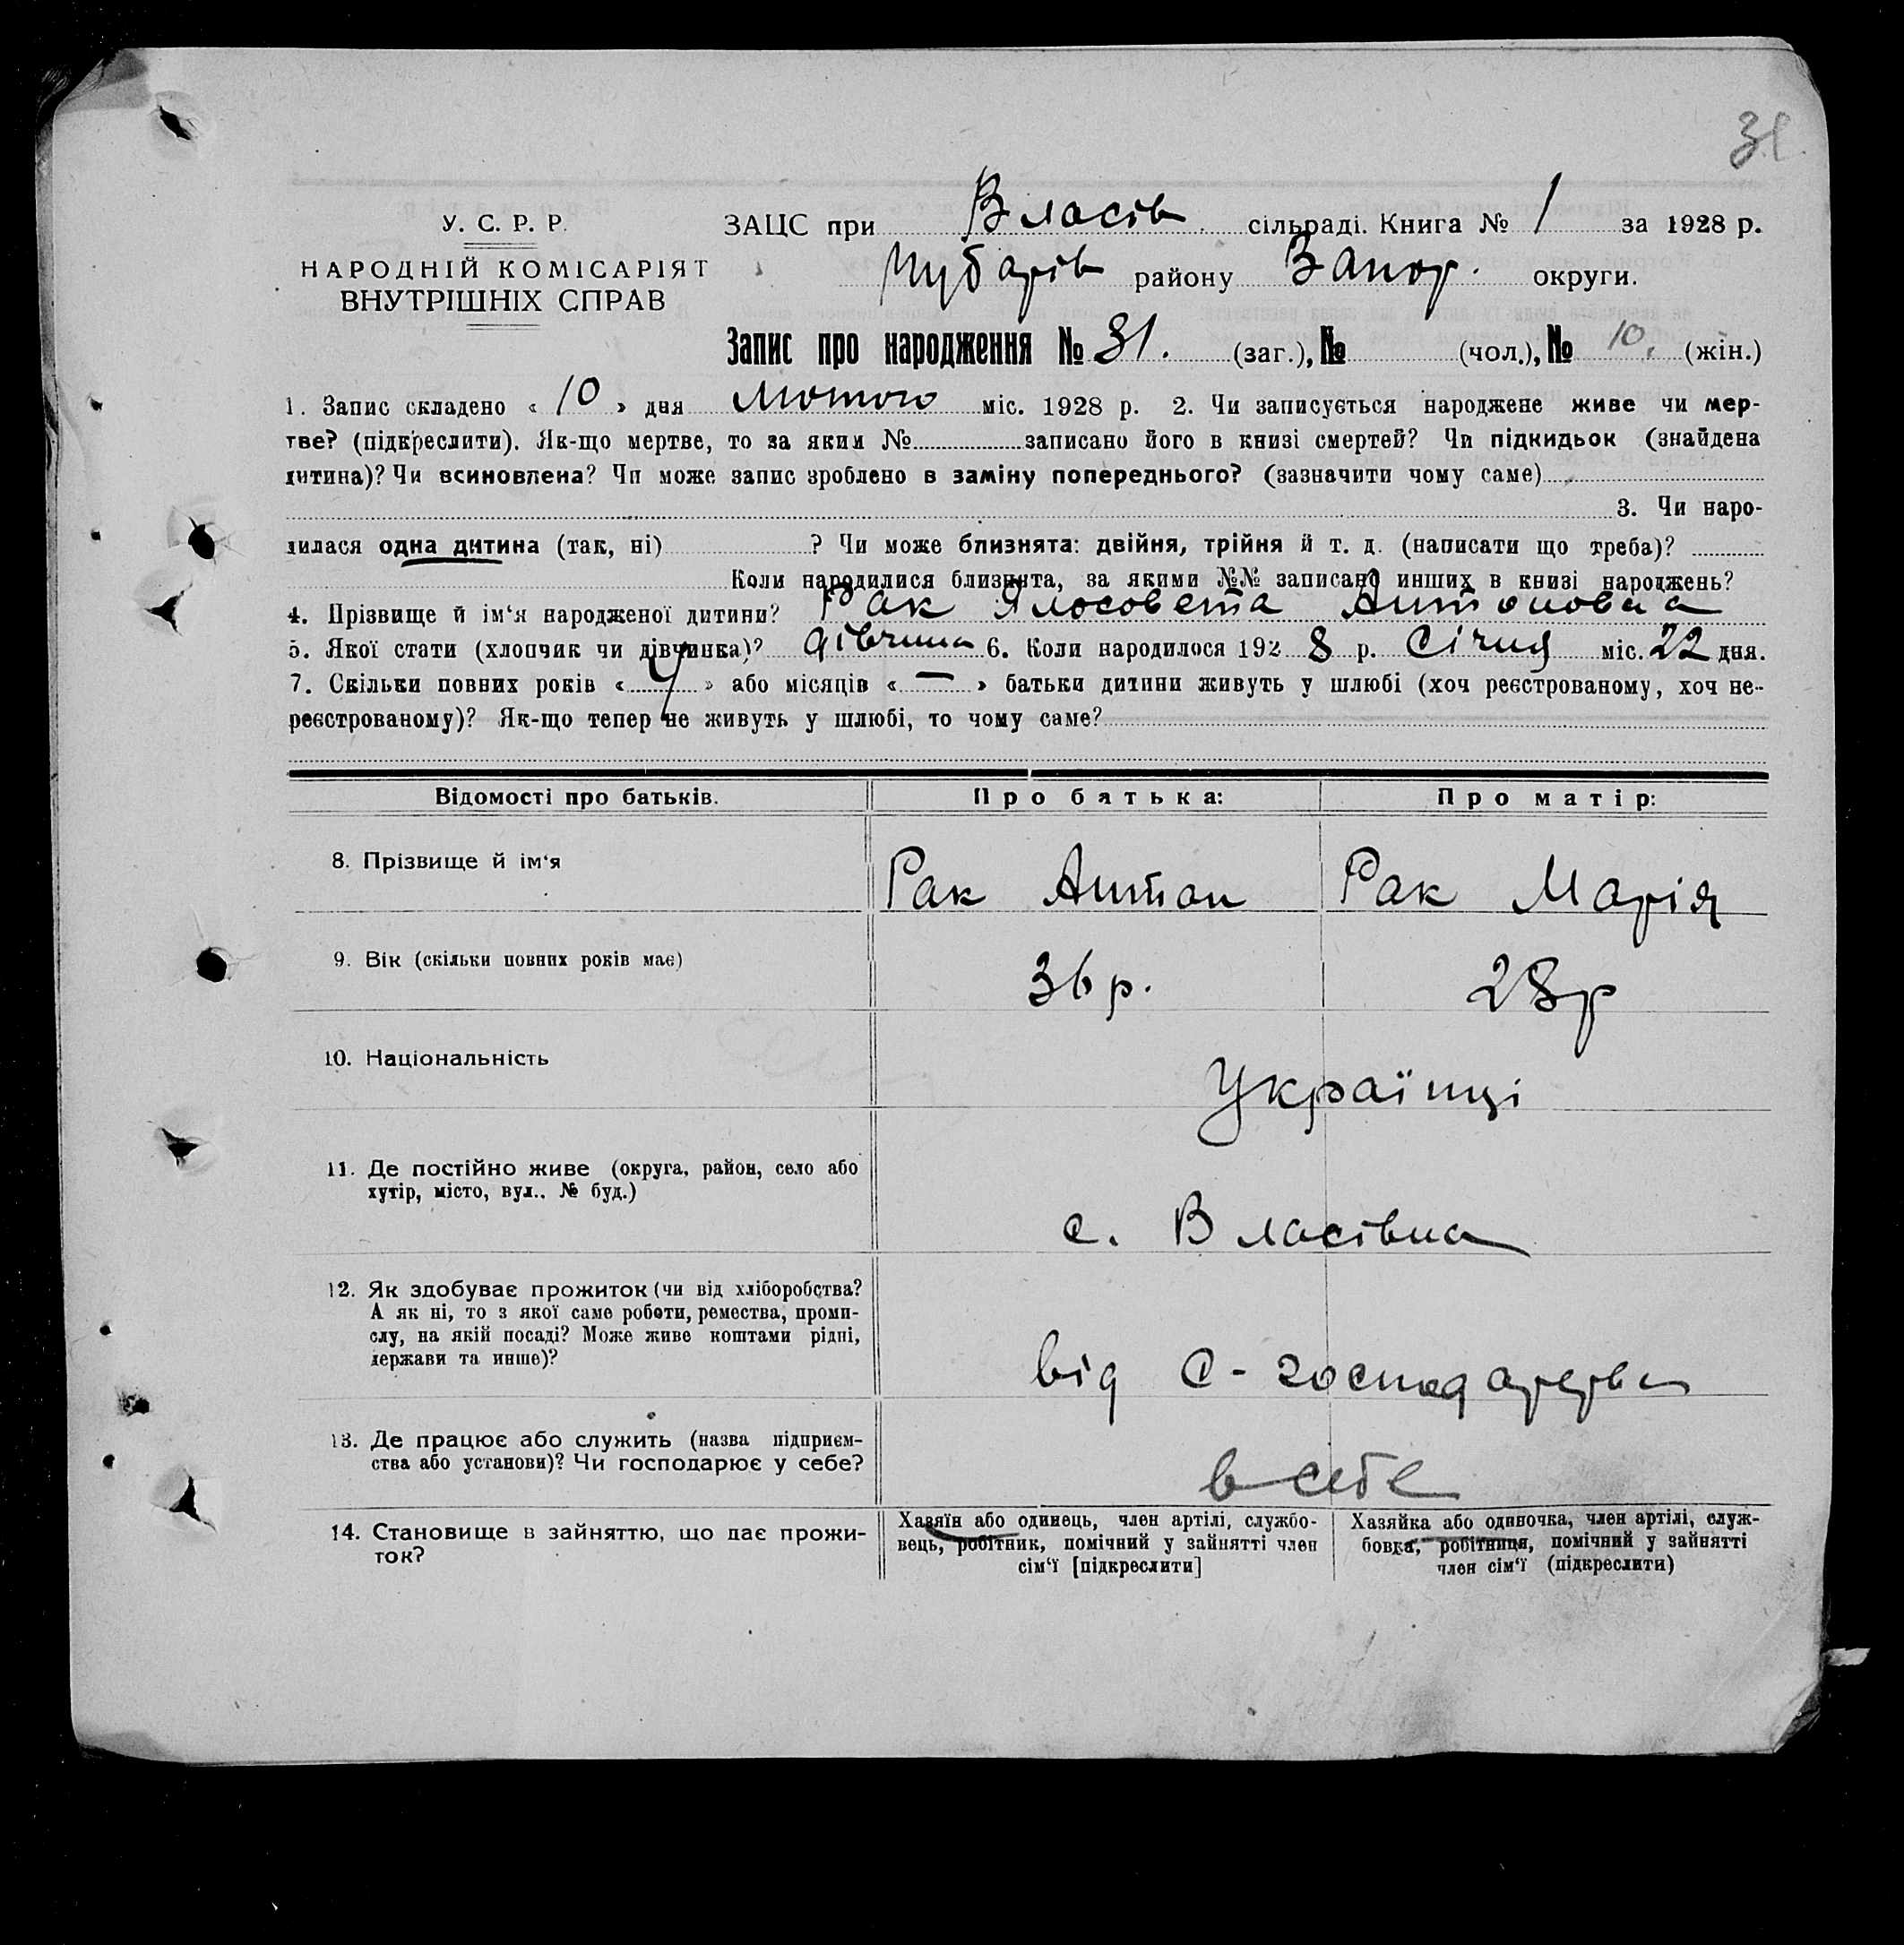 31.
У. С. Р. Р.
НАРОДНІЙ КОМІСАРІЯТ
ВНУТРІШНІХ СПРАВ
ЗАЦС при Власів. сільраді. Книга № 1 за 1928 р.
Чубарів району Запор. округи.
Запис про народження № 31. (заг.), № (чол.), № 10. (жін.)
1. Запис складено « 10 » дня Лютого міс. 1928 р. 2. Чи записується народжене живе чи мер-
тве? (підкреслити). Як-що мертве, то за яким № записано його в книзі смертей? Чи підкидьок (знайдена
дитина)? Чи всиновлена? Чи може запис зроблено в заміну попереднього? (зазначити чому саме)
3. Чи наро-
дилася одна дитина (так, ні) ? Чи може близнята: двійня, трійня й т. д. (написати що треба)?
Коли народилися близнята, за якими №№ записано инших в книзі народжень?
4. Прізвище й ім‘я народженої дитини? Рак Ялосовета Антоновна
5. Якої стати (хлопчик чи дівчинка)? дівчина 6. Коли народилося 1928 р. Січня міс. 22 дня.
7. Скільки повних років « 4 » або місяців « — » батьки дитини живуть у шлюбі (хоч реєстрованому, хоч не-
реєстрованому)? Як-що тепер не живуть у шлюбі, то чому саме?
Відомості про батьків. Про батька: Про матір:
8. Прізвище й ім‘я Рак Антон Рак Марія
9. Вік (скільки повних років має) 36 р. 28 р
10. Національність Українці
11. Де постійно живе (округа, район, село або
хутір, місто, вул.. № буд.)
с. Власівка
12. Як здобуває прожиток (чи від хліборобства?
А як ні, то з якої саме роботи, ремества, проми-
слу, на якій посаді? Може живе коштами рідні,
держави та инше)?
від с-господарства
13. Де працює або служить (назва підприєм-
ства або установи)? Чи господарює у себе?
в себе
14. Становище в зайняттю, що дає прожи-
ток?
Хазяїн або одинець, член артілі, службо-
вець, робітник, помічний у зайнятті член
сім‘ї [підкреслити]
Хазяйка або одиночка, член артілі, служ-
бовка, робітниця, помічний у зайнятті
член сім‘ї (підкреслити)